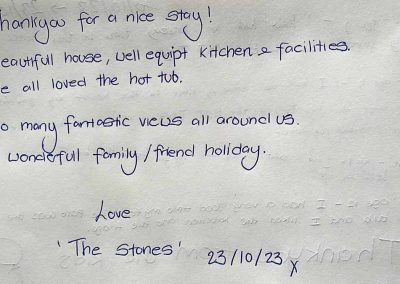 hankyou for a nice stay!
eautiful house, well equipt kitchen & facilities.
e all loved the hot tub.
o many fantastic views all around us.
wonderful family/friend holiday.
Love
'The Stones'
23/10/23 x